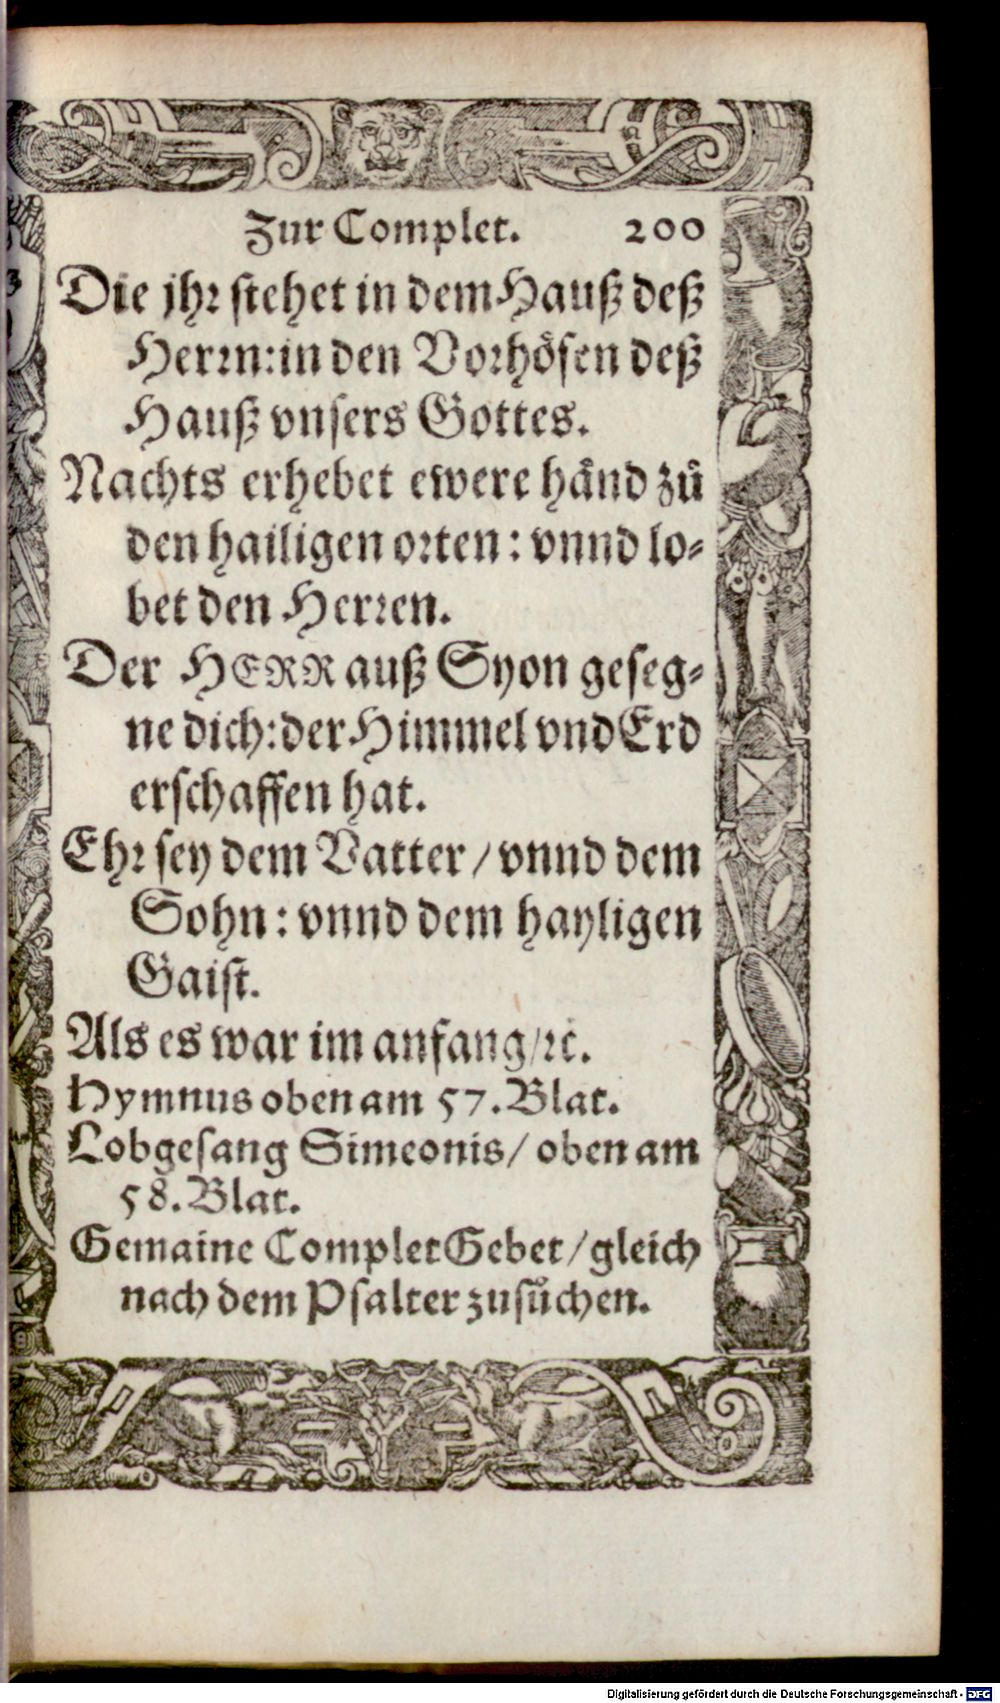 Zur Complet. 200
Die jhr stehet in dem Hauß deß
Herrn: in den Vorhöfen deß
Hauß vnsers Gottes.
Nachts erhebet ewere händ zů
den hailigen orten: vnnd lo-
bet den Herren.
Der HERR auß Syon geseg-
ne dich: der Himmel vnd Erd
erschaffen hat.
Ehr sey dem Vatter / vnnd dem
Sohn: vnnd dem hayligen
Gaist.
Als es war im anfang / ꝛc.
Hymnus oben am 57. Blat.
Lobgesang Simeonis / oben am
58. Blat.
Gemaine Complet Gebet / gleich
nach dem Psalter zusůchen.
Digitalisierung gefördert durch die Deutsche Forschungsgemeinschaft - DFG